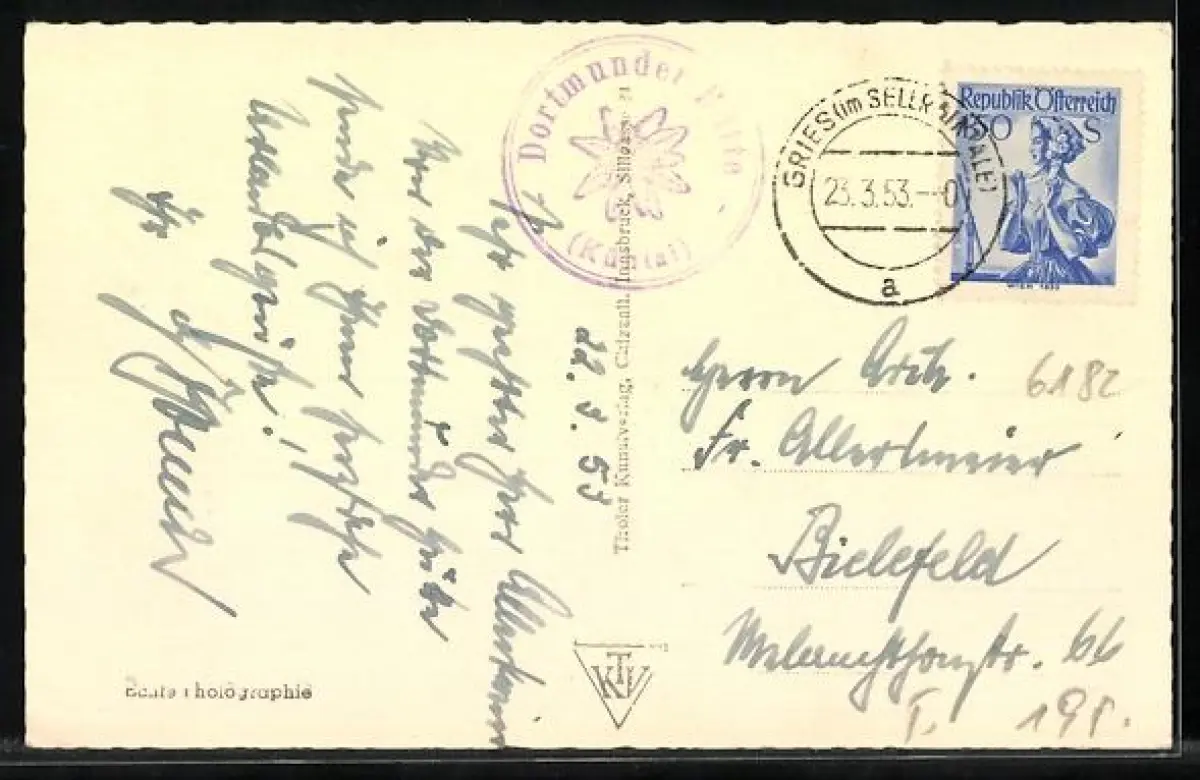 Dortmunder Hütte
(Kühtai)
GRIES (im SELLRAINTALE)
23.3.53.--0
a
Republik Österreich
S
WIEN 1850
22.3.53
Sehr geehrter Herr
Von der Dortmunder Hütte
sende ich Ihnen herzliche
Urlaubsgrüße!
Ihr
Tiroler Kunstverlag, Chizzali, Innsbruck,
Herrn Arch.
6182
Fr. Allertmeier
Bielefeld
Melanchthonstr. 66
198.
KTV
Echte Photographie